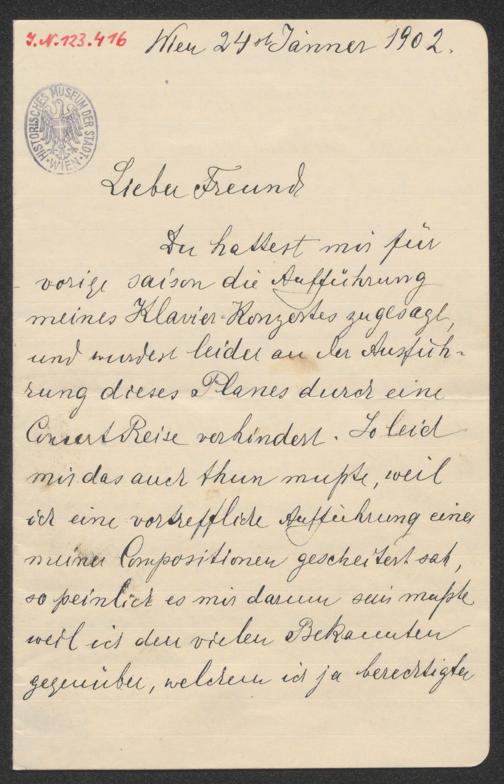 J.N. 123.416
Wien 24st Jänner 1902.
HISTORISCHES MUSEUM DER STADT WIEN
Lieber Freund
Du hattest mir für
vorige saison die Aufführung
meines Klavier-Konzertes zugesagt,
und wurdest leider an der Ausfüh-
rung dieses Planes durch eine
Concert Reise verhindert. So leid
mir das auch thun mußte, weil
ich eine vortreffliche Aufführung einer
meiner Compositionen gescheitert sah,
so peinlich es mir darum sein mußte
weil ich den vielen Bekannten
gegenüber, welchem ich ja berechtigter